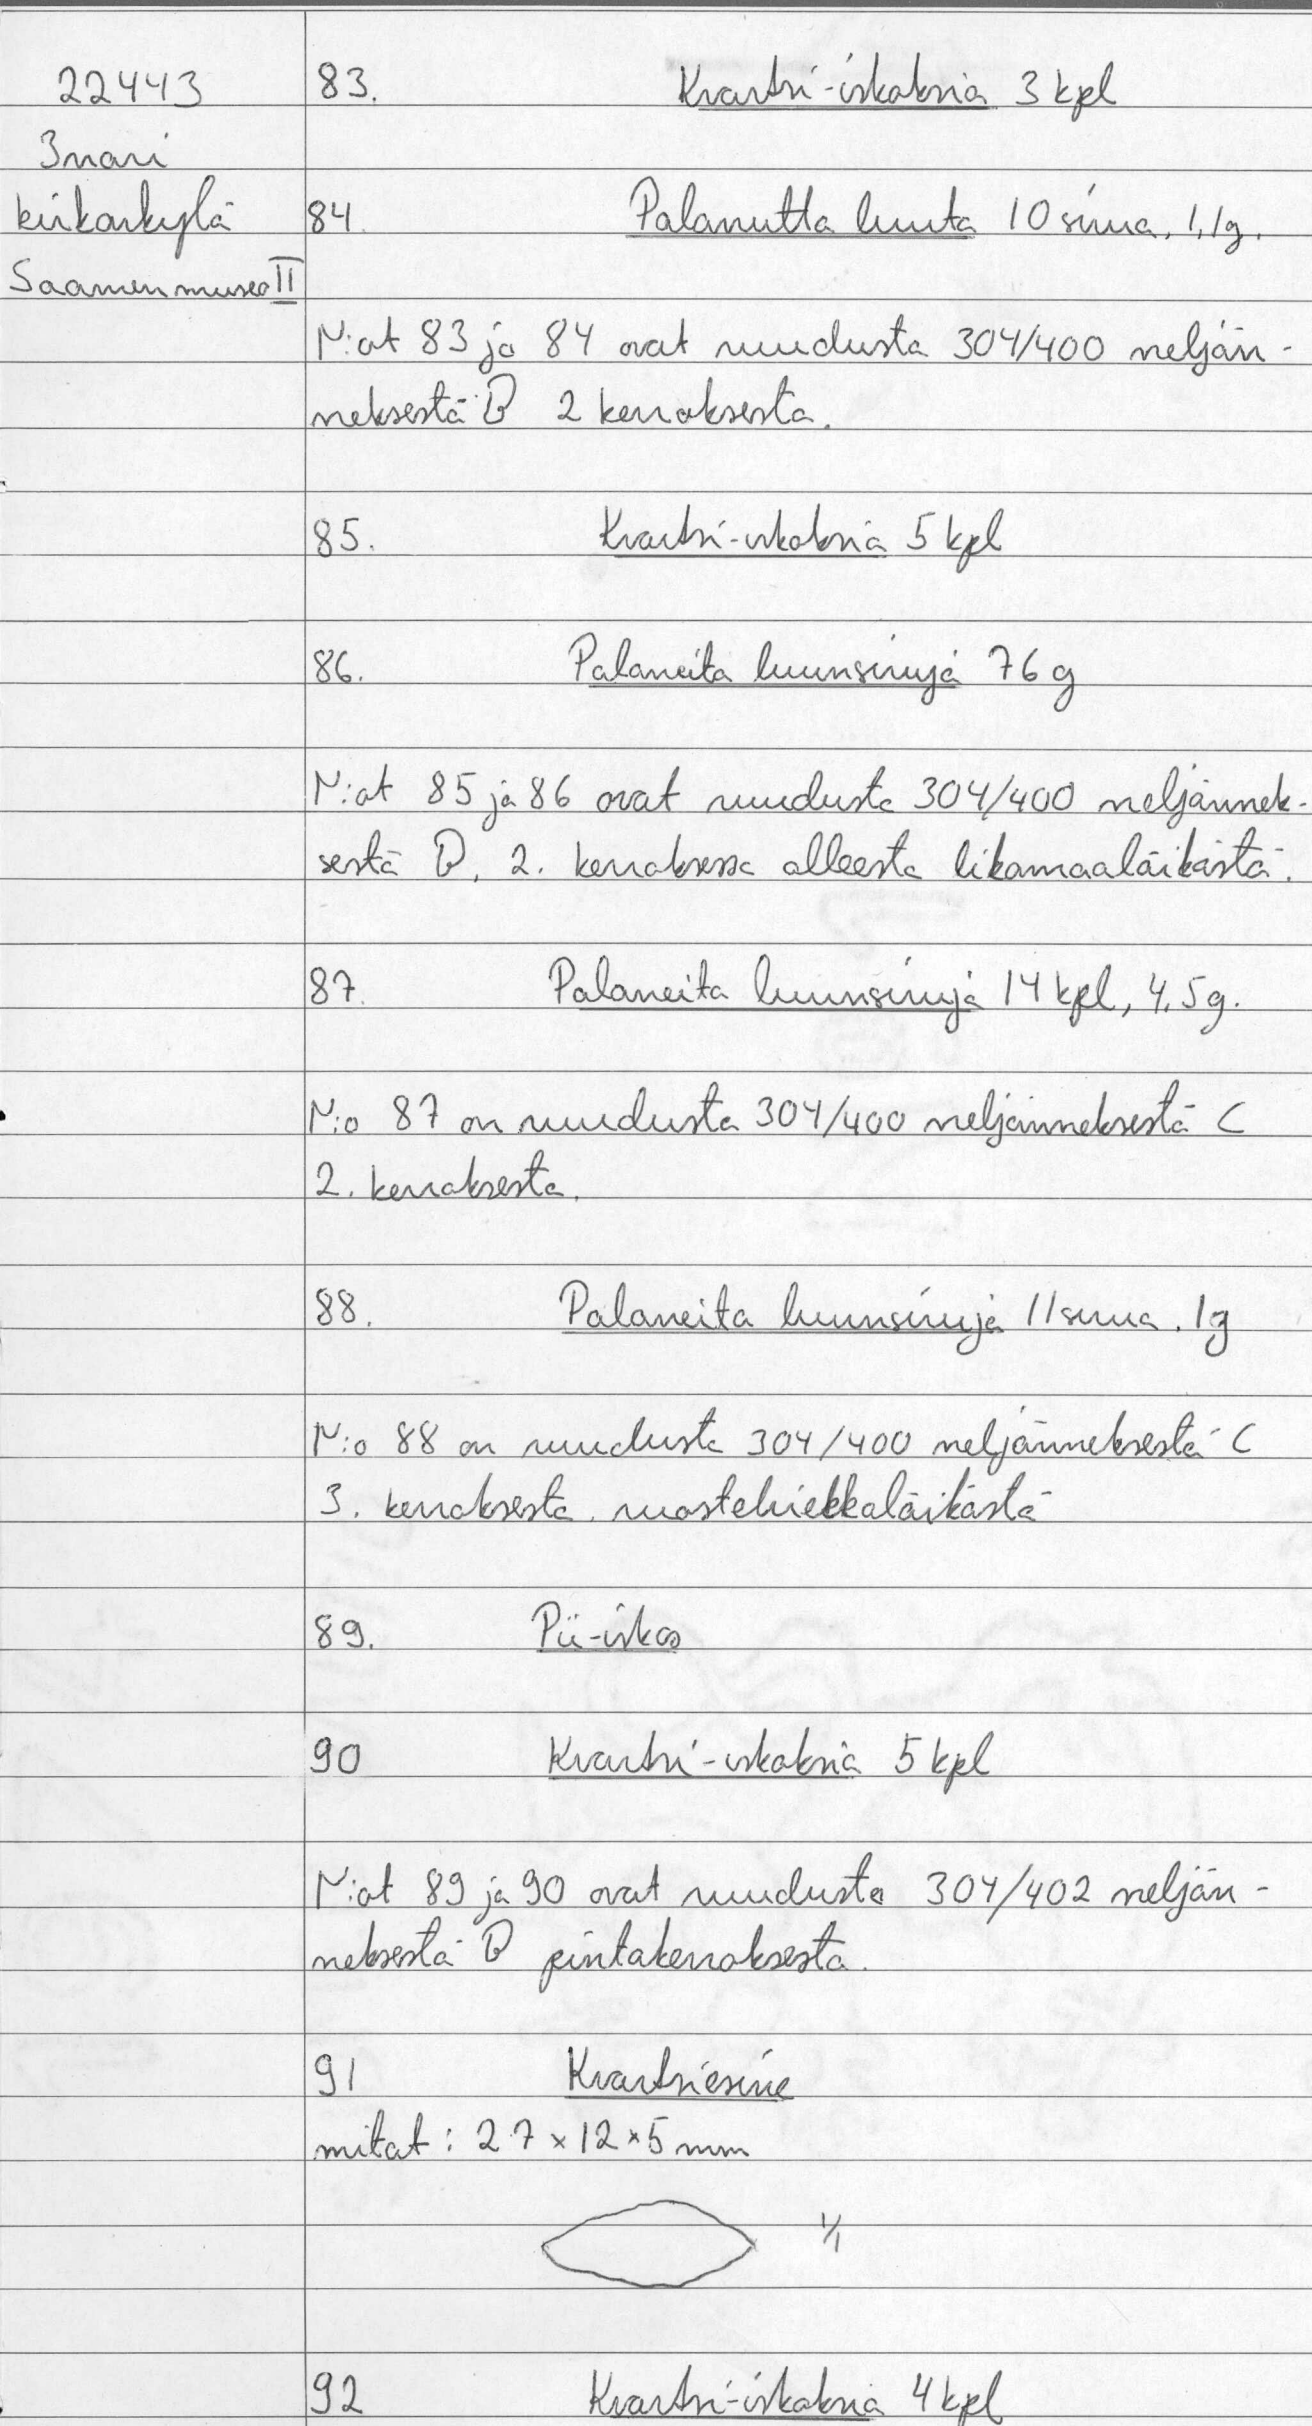 22443
Inari
kirkonkylä
Saamenmuseo II
83. Kvartsi-iskoksia 3 kpl
84. Palanutta luuta 10 sirua, 1,1g.
N:ot 83 ja 84 ovat ruudusta 304/400 neljän-
neksestä D 2 kerroksesta.
85. Kvartsi-iskoksia 5 kpl
86. Palaneita luunsiruja 76 g
N:ot 85 ja 86 ovat ruudusta 304/400 neljännek-
sestä D, 2. kerroksessa olleesta likamaaläikästä.
87. Palaneita luunsiruja 14 kpl, 4,5g.
N:o 87 on ruudusta 304/400 neljänneksestä C
2. kerroksesta.
88. Palaneita luunsiruja 11 sirua, 1g
N:o 88 on ruudusta 304/400 neljänneksestä C
3. kerroksesta, ruostehiekkaläikästä
89. Pii-iskos
90 Kvartsi-iskoksia 5 kpl
N:ot 89 ja 90 ovat ruudusta 304/402 neljän-
neksestä D pintakerroksesta.
91 Kvartsiesine
mitat: 27×12×5 mm
1/1
92 Kvartsi-iskoksia 4 kpl